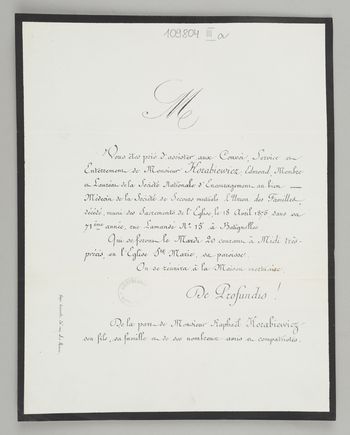 109804 III a
M
Vous êtes prié d'assister aux Convoi, Service et
Enterrement de Monsieur Korabiewicz, Edmond, Membre
et Lauréat de la Société Nationale d'Encouragement au bien —
Médecin de la Société de Secours mutuels l'Union des Familles,
décédé, muni des Sacrements de l'Eglise le 18 Avril 1875 dans sa
71ème année, rue Lemande Nº 15 à Batignolles
Qui se feront le Mardi 20 courant à Midi très
précis, en l'Eglise Ste Marie, sa paroisse.
On se réunira à la Maison mortuaire.
De Profundis !
De la part de Monsieur Raphaël Korabiewicz
son fils, sa famille et de ses nombreux amis et compatriotes.